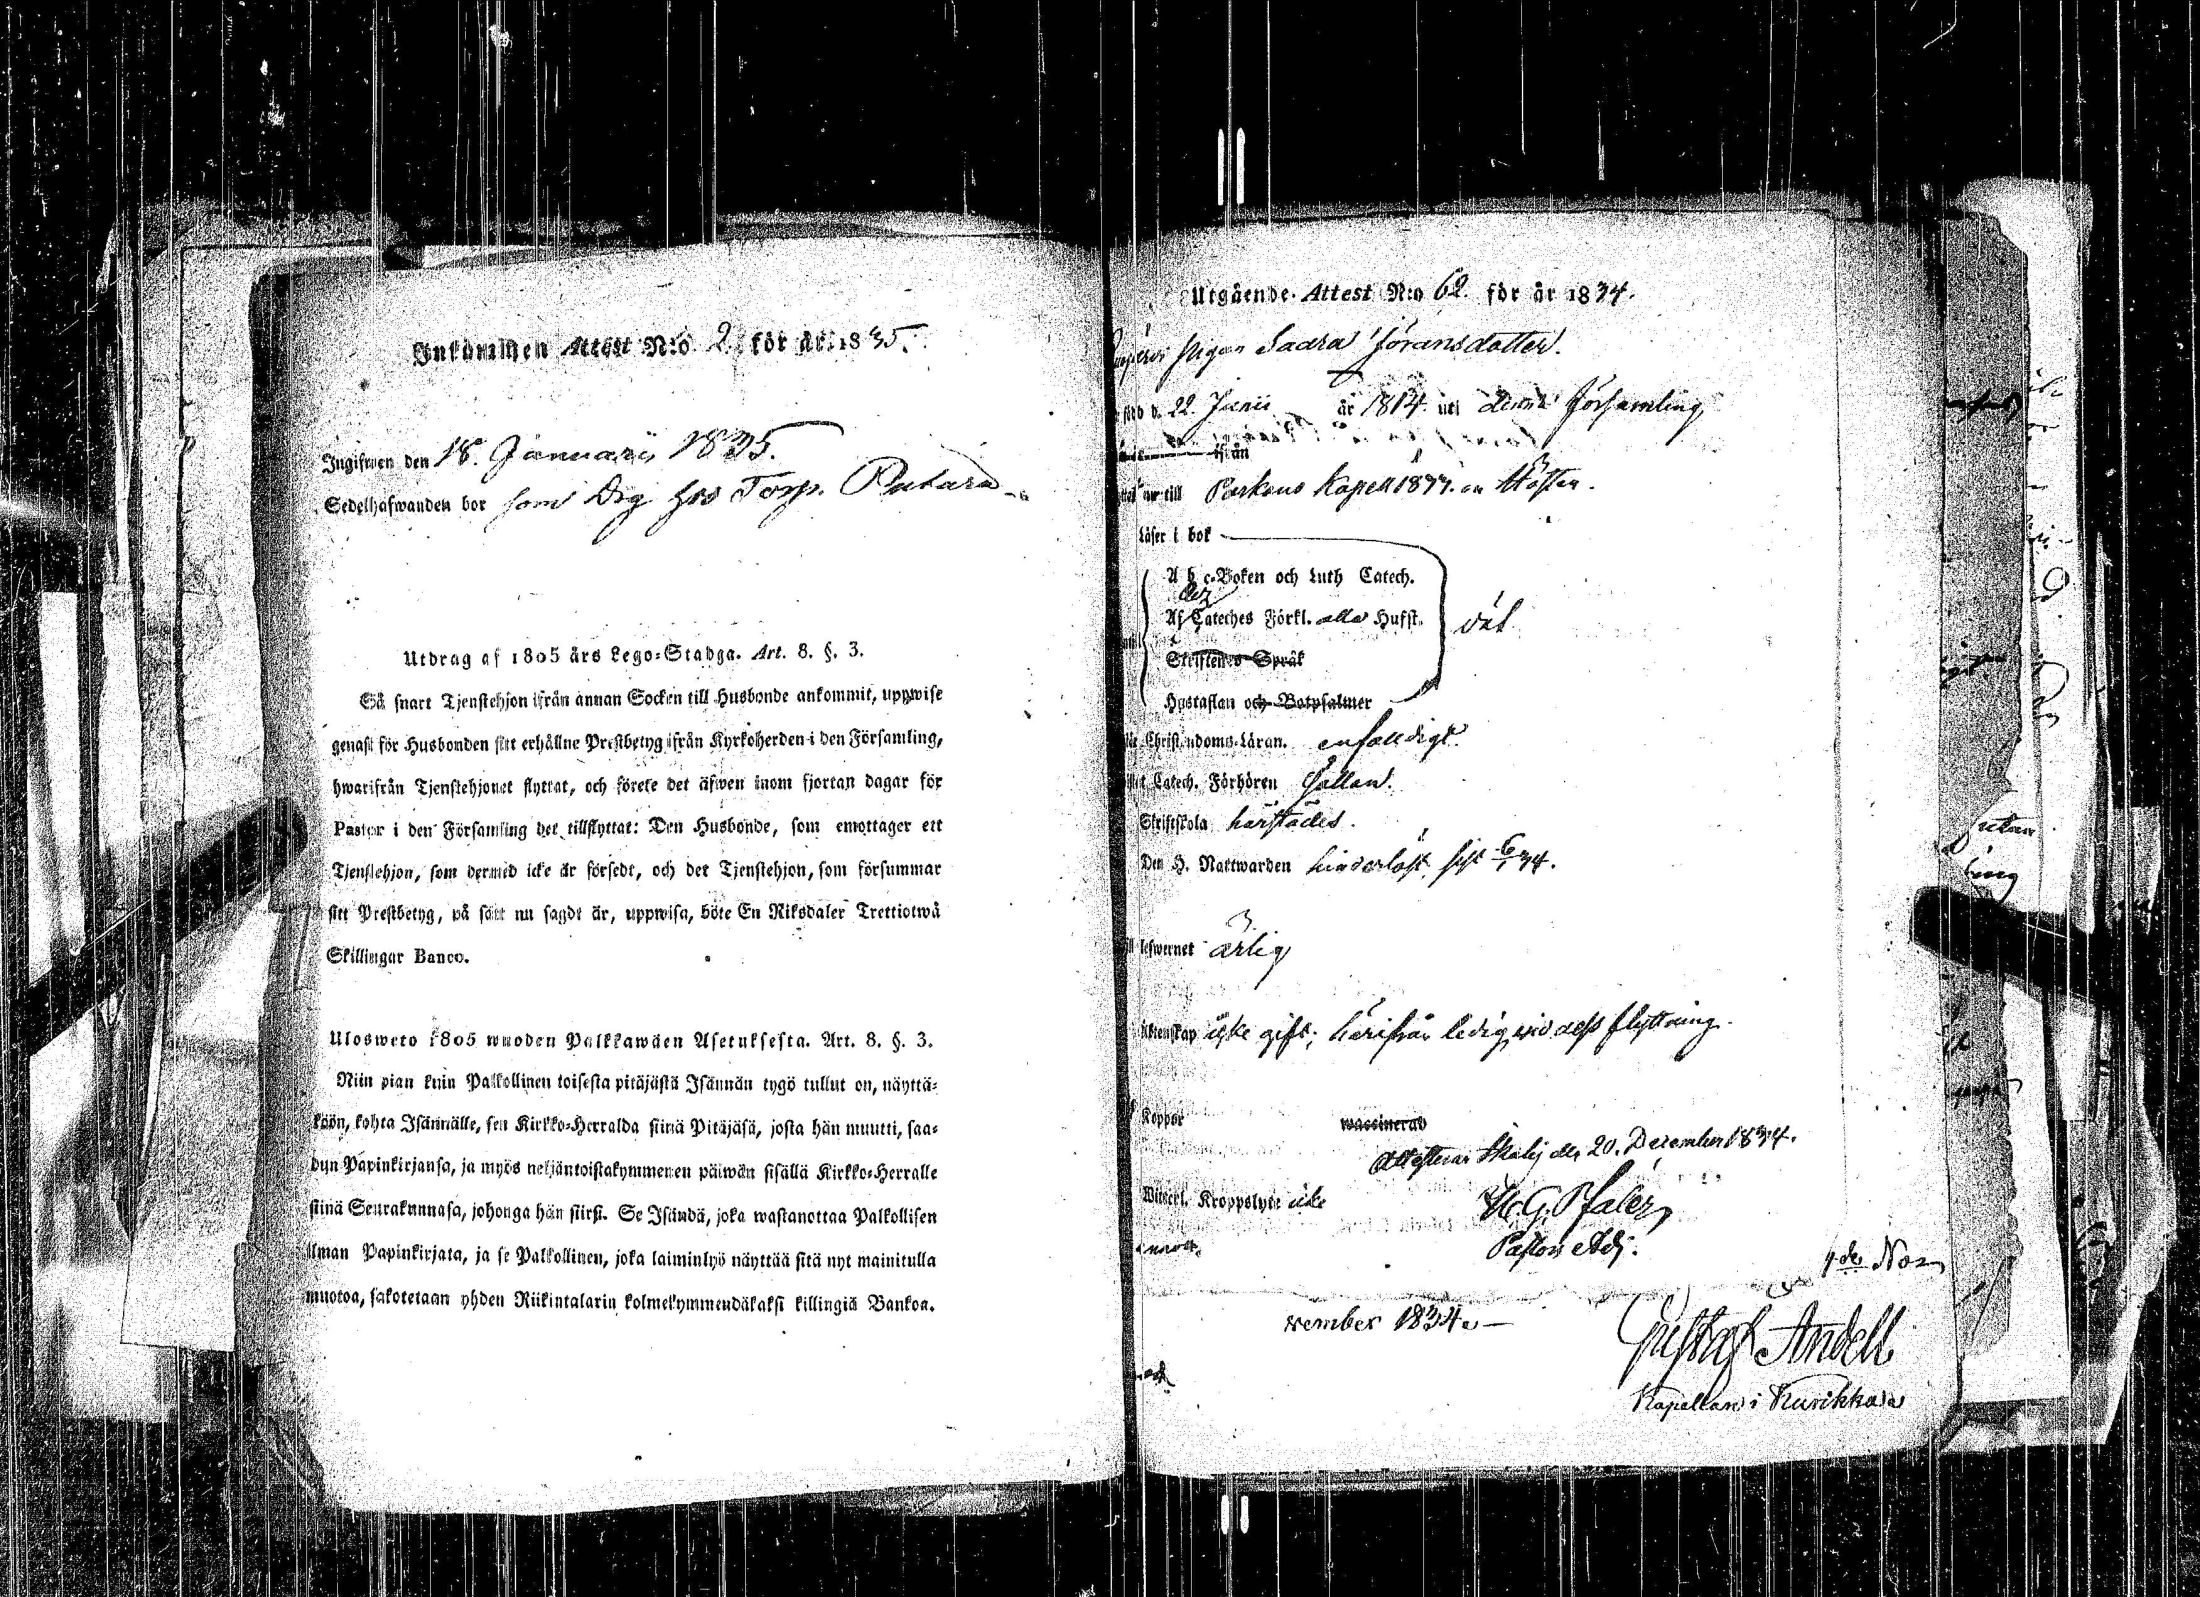 Inkommen Attest N:o 2. för år 1835.
Ingifwen den 18. Januarii 1835.
Sedelhafwanden bor som Drg hos Torp.
Utdrag af 1805 års Lego-Stadga. Art. 8. §. 3.
Så snart Tjenstehjon ifrån annan Socken till Husbonde ankommit, uppwise
genast för Husbonden sitt erhållne Prestbetyg ifrån Kyrkoherden i den Församling,
hwarifrån Tjenstehjonet flyttat, och förete det äfwen inom fjortan dagar för
Pastor i den Församling det tillflyttat: Den Husbonde, som emottager ett
Tjenstehjon, som dermed icke är försedt, och det Tjenstehjon, som försummar
sitt Prestbetyg, på sätt nu sagdt är, uppwisa, böte En Riksdaler Trettiotwå
Skillingar Banco.
Ulosweto 1805 wuoden Palkkawäen Asetuksesta. Art. 8. §. 3.
Niin pian kuin Palkollinen toisesta pitäjästä Isännän tygö tullut on, näyttä-
köön, kohta Isännälle, sen Kirkko-Herralda siinä Pitäjäsä, josta hän muutti, saa-
dun Papinkirjansa, ja myös neljäntoistakymmenen päiwän sisällä Kirkko-Herralle
siinä Seurakunnasa, johonga hän siirsi. Se Isändä, joka wastanottaa Palkollisen
ilman Papinkirjata, ja se Palkollinen, joka laiminlyö näyttää sitä nyt mainitulla
muotoa, sakotetaan yhden Riikintalarin kolmekymmendäkaksi killingiä Bankoa.
Utgående Attest N:o 62. för år 1834.
Pigan Saara Jöransdotter.
född d. 22. Junii år 1814. uti denna Församling
ifrån
till Parkano Kapell 1834. om Hösten.
Läser i bok
A b c-Boken och Luth Catech.
Af Cateches Förkl. alla Hufst.
Skriftenes Språk
Hustaflan och Botpsalmer
väl
Christendoms-Läran. enfaldigt.
Catech. Förhören sällan.
Skriftskola härstädes.
Den H. Nattwarden hinderlöst, sist 34.
lefwernet ärlig
Äktenskap icke gift; härifrån ledig wid dess flyttning.
Koppor waccinerad
Attesterar den 20. December 1834.
Kroppslyte icke
H. G. Pfaler
Pastors Adj.
4de No-
vember 1834.
Gustaf Andell
Kapellan i Kurikka